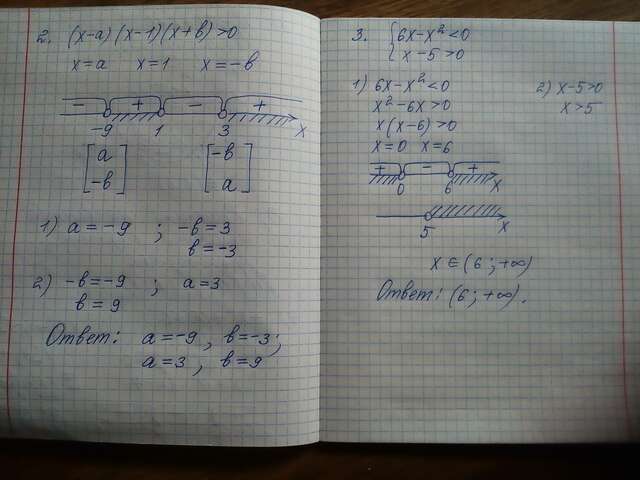 2. (x-a)(x-1)(x+b)>0
x=a x=1 x=-b
- + - +
-9 1 3 x
[a -b] [-b a]
1) a=-9 ; -b=3
b=-3
2) -b=-9 ; a=3
b=9
Ответ: a=-9, b=-3;
a=3, b=9
3. {6x-x²<0
x-5>0
1) 6x-x²<0
x²-6x>0
x(x-6)>0
x=0 x=6
+ - +
0 6 x
5 x
2) x-5>0
x>5
x∈(6;+∞)
Ответ: (6;+∞).